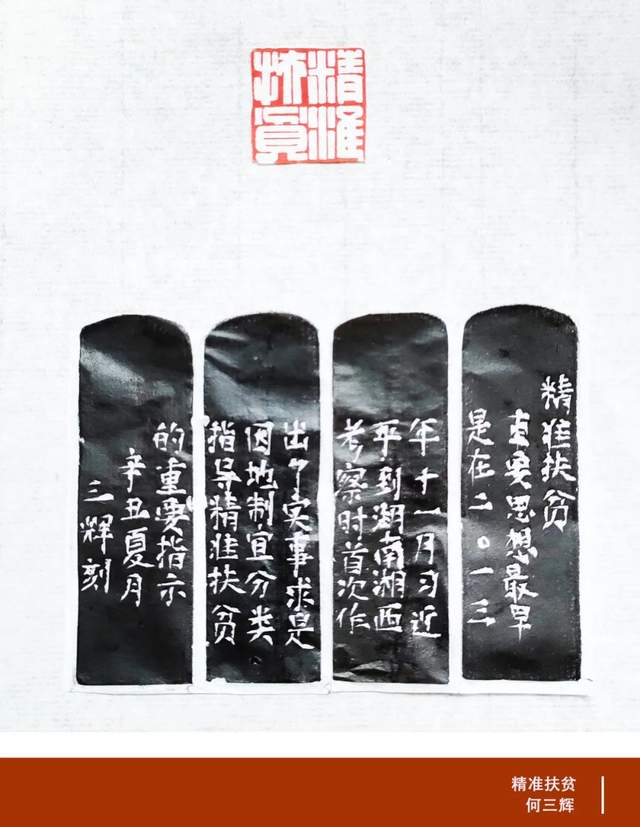 精准
扶贫
精准扶贫
重要思想最早
是在二〇一三
年十一月习近
平到湖南湘西
考察时首次作
出了实事求是
因地制宜分类
指导精准扶贫
的重要指示
辛丑夏月
三辉刻
精准扶贫
何三辉